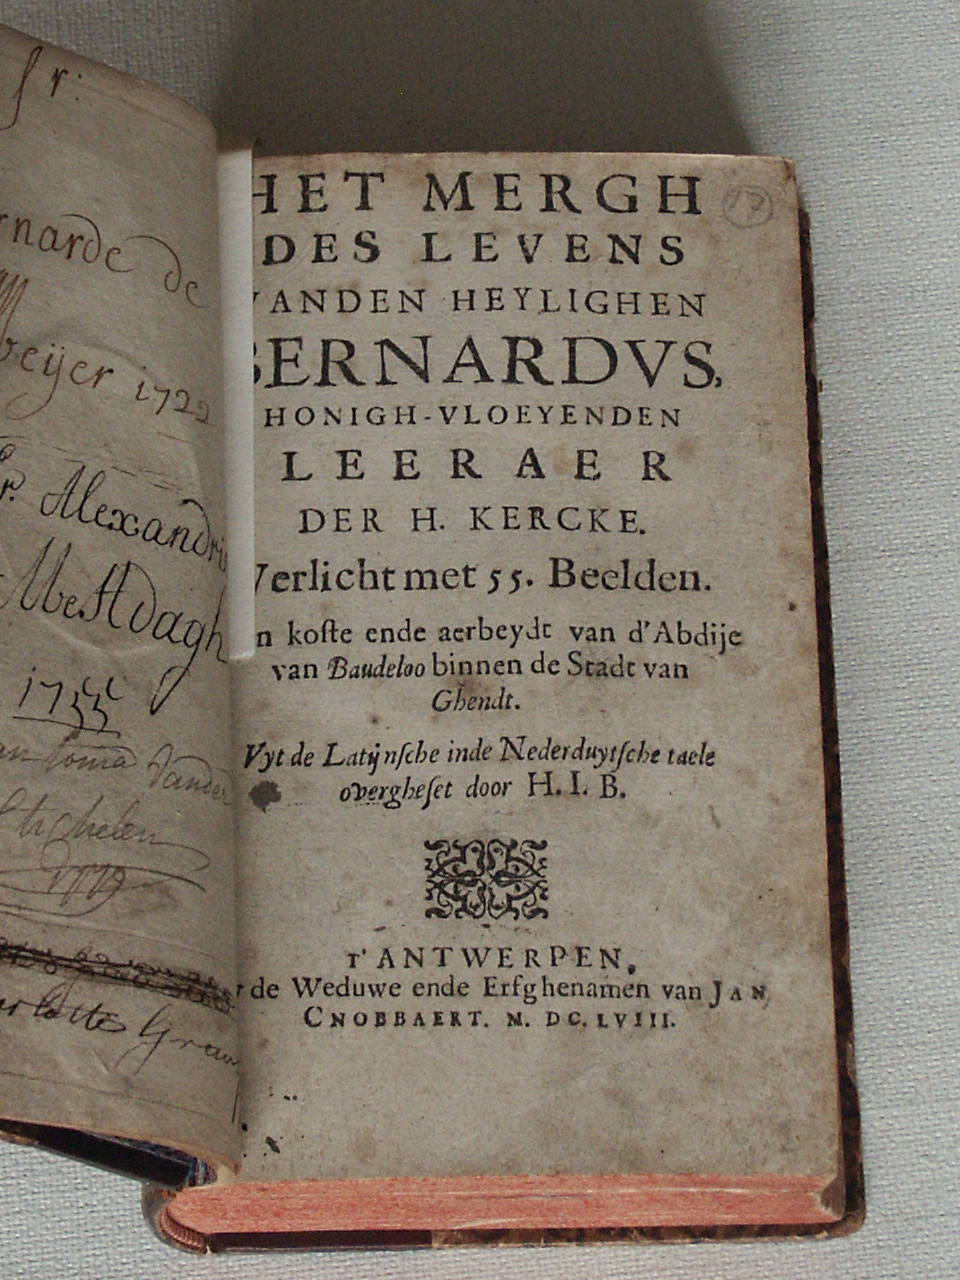 r.
rnarde de
beijer 1722
r. Alexandri
MesHdagh
1755
Vander
1779
HET MERGH
DES LEVENS
VANDEN HEYLIGHEN
BERNARDVS,
HONIGH-VLOEYENDEN
LEERAER
DER H. KERCKE.
Verlicht met 55. Beelden.
n koſte ende aerbeydt van d'Abdije
van Baudeloo binnen de Stadt van
Ghendt.
Vyt de Latijnſche inde Nederduytſche taele
overgheſet door H. I. B.
T'ANTWERPEN,
r de Weduwe ende Erfghenamen van JAN
CNOBBAERT. M. DC. LVIII.
17